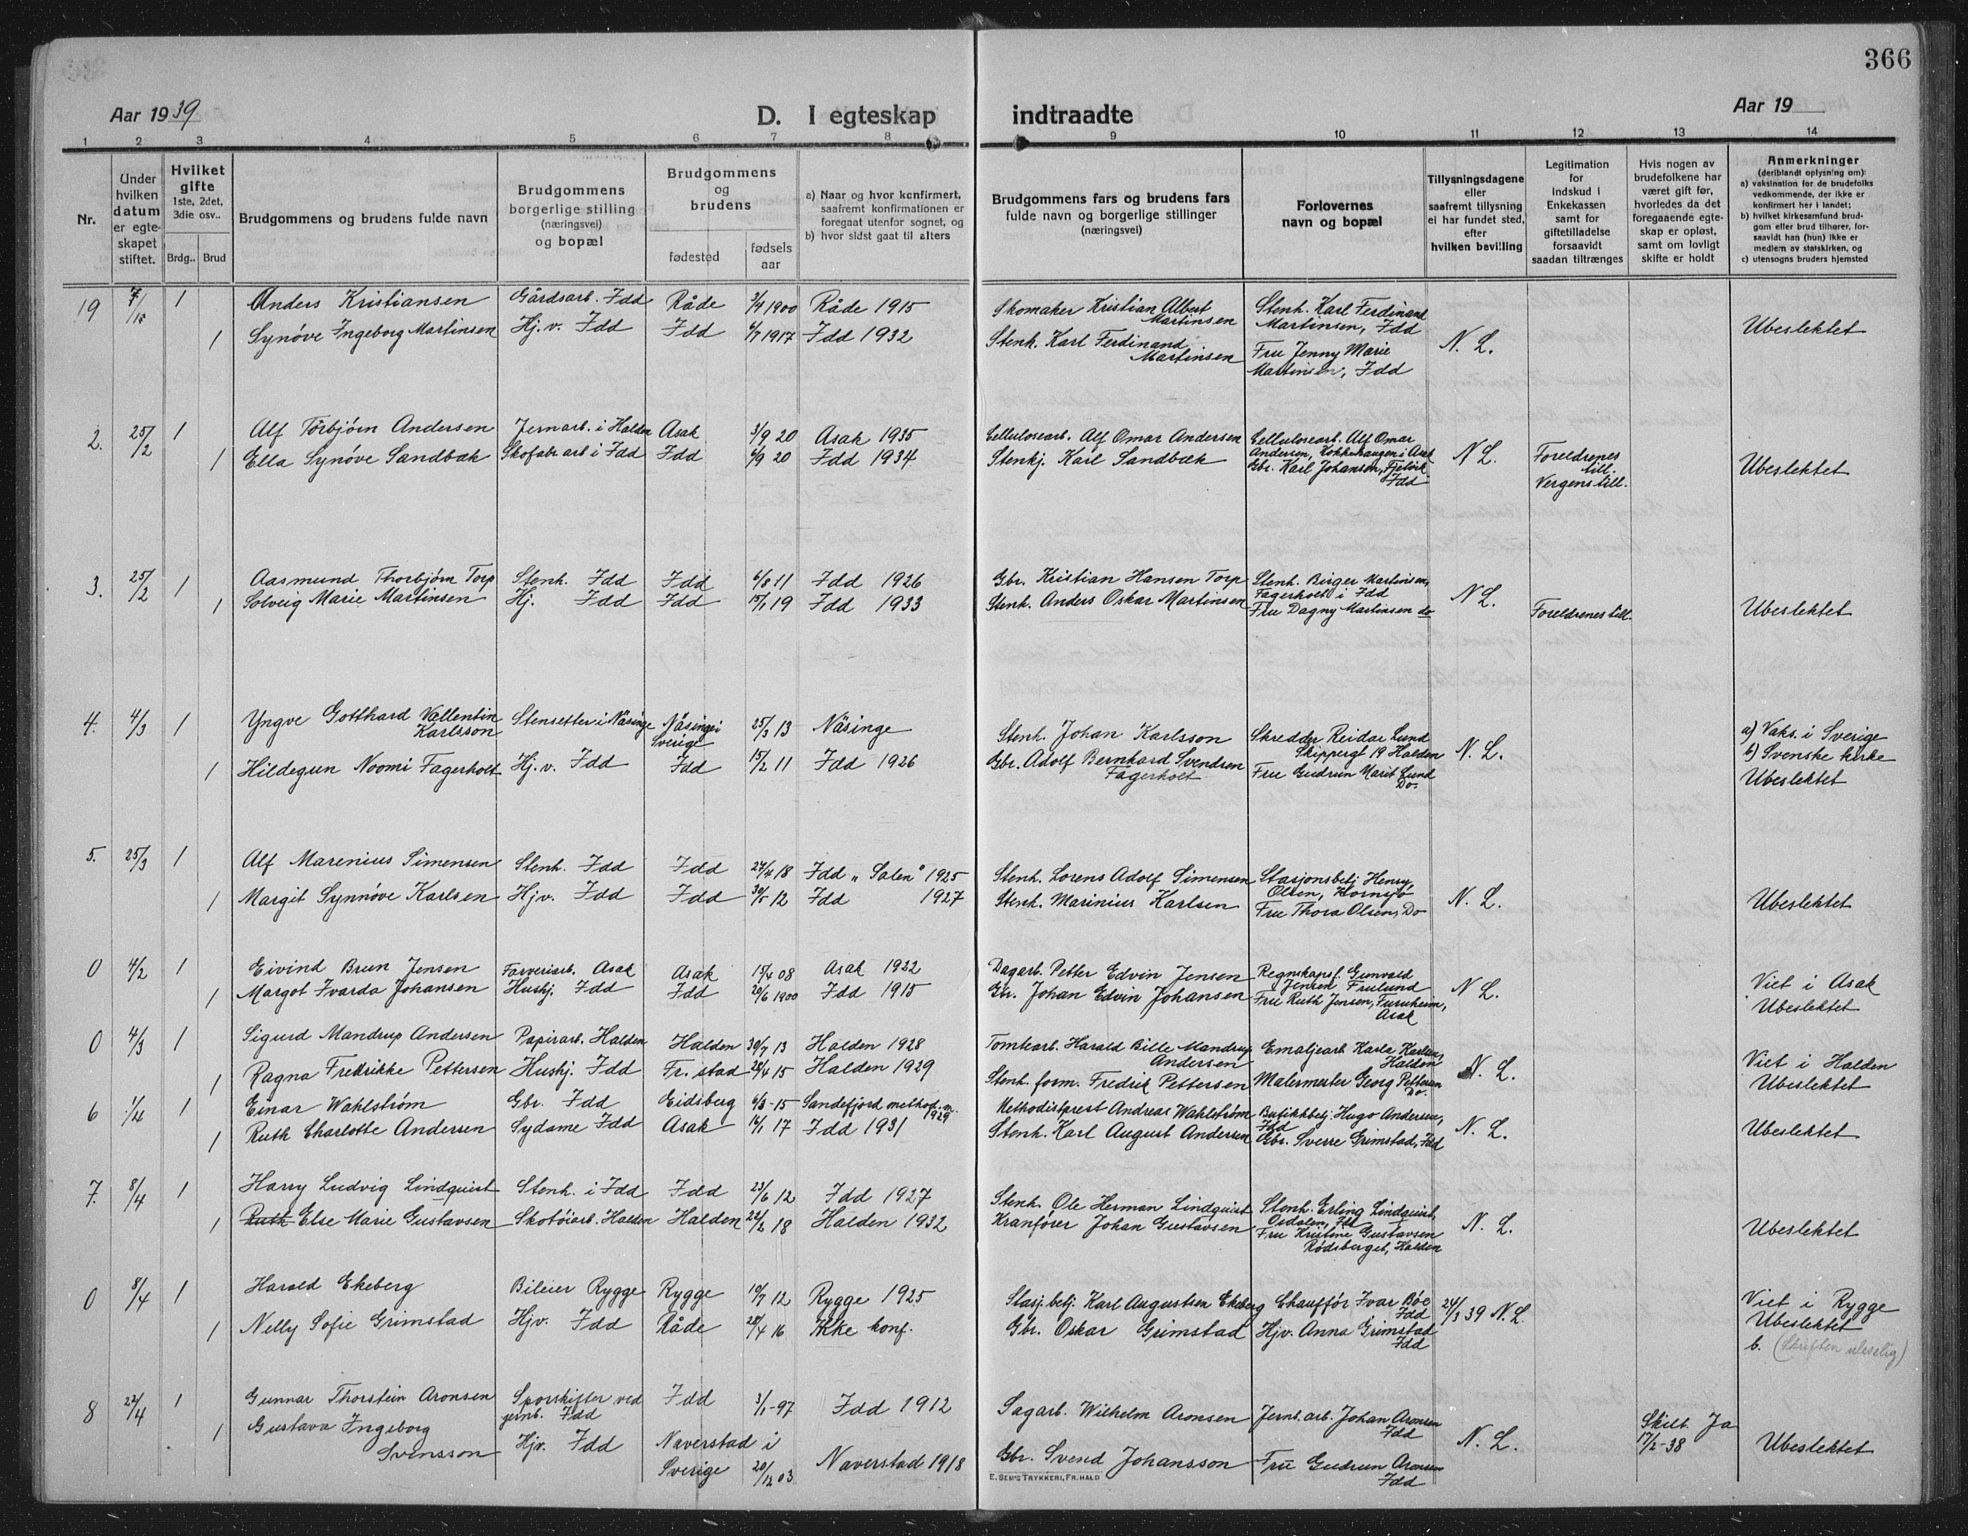 366
Aar 1939
D. I egteskap indtraadte
Aar 19
1 2 3 4 5 6 7 8 9 10 11 12 13 14
Nr.
Under hvilken datum er egteskapet stiftet.
Hvilket gifte 1ste, 2det, 3die osv..
Brdg.. Brud
Brudgommens og brudens fulde navn
Brudgommens borgerlige stilling (næringsvei) og bopæl
Brudgommens og brudens
fødested
fødsels aar
a) Naar og hvor konfirmert, saafremt konfirmationen er foregaat utenfor sognet, og
b) hvor sidst gaat til alters
Brudgommens fars og brudens fars fulde navn og borgerlige stillinger (næringsvei)
Forlovernes navn og bopæl
Tillysningsdagene eller saafremt tillysning ei har fundet sted, efter hvilken bevilling
Legitimation for indskud i Enkekassen samt for giftetilladelse forsaavidt saadan tiltrænges
Hvis nogen av brudefolkene har været gift før, hvorledes da det foregaaende egteskap er opløst, samt om lovligt skifte er holdt
Anmerkninger (deriblandt oplysning om):
a) vaksination for de brudefolks vedkommende, der ikke er konfirmert her i landet;
b) hvilket kirkesamfund brudgom eller brud tilhører, forsaavidt han (hun) ikke er medlem av statskirken, og
c) utensogns bruders hjemsted
19 7/1 1 Anders Kristiansen Gårdsarb. Idd Råde 2/4 1900 Råde 1915 Skomaker Kristian Albert Martinsen Stenh. Karl Ferdinand Martinsen, Idd
1 Synøve Ingeborg Martinsen Hj.v. Idd Idd 6/7 1917 Idd 1932 Stenh. Karl Ferdinand Martinsen Fru Jenny Marie Martinsen, Idd N. L. Ubeslektet
2. 25/2 1 Alf Torbjørn Andersen Jernarb. i Halden Asak 3/9 20 Asak 1935 Cellulosearb. Alf Omar Andersen Cellulosearb. Alf Omar Andersen, Kokkehaugen i Asak
1 Ella Synøve Sandbæk Skofabr.arb i Idd Idd 6/9 20 Idd 1934 Stenkj. Karl Sandbæk Gbr. Karl Johansen, Idd N L. Foreldrenes till. Vergens till. Ubeslektet
3. 25/2 1 Aasmund Thorbjørn Torp Stenh. Idd Idd 6/8 11 Idd 1926 Gbr. Kristian Hansen Torp Stenh. Birger Martinsen, Fagerholt i Idd
1 Solveig Marie Martinsen Hj. Idd Idd 15/1 19 Idd 1933 Stenh. Anders Oskar Martinsen Fru Dagny Martinsen do N L. Foreldrenes till. Ubeslektet
4. 4/3 1 Yngve Gotthard Vallentin Karlsson Stensetter i Näsinge Näsinge i Sverige 25/3 13 Näsinge Stenh. Johan Karlsson Skredder Reidar Lund Skippergt 19 Halden a) Vaks. i Sverige b) Svenske kirke
1 Hildegun Noomi Fagerholt Hj.v. Idd Idd 15/2 11 Idd 1926 Gbr. Adolf Bernhard Svendsen Fagerholt Fru Gudrun Marit Lund Do. N. L. Ubeslektet
5. 25/3 1 Alf Marenius Simensen Stenh. Idd Idd 27/4 18 Idd „Salen" 1925 Stenh. Lorens Adolf Simensen Stasjonsbetj. Henry Olsen, Kornsjø
1 Margit Synnøve Karlsen Hjv. Idd Idd 30/5 12 Idd 1927 Stenh. Marinius Karlsen Fru Thora Olsen, Do N. L. Ubeslektet
0 4/2 1 Eivind Brun Jensen Farveriarb. Asak Asak 15/4 08 Asak 1922 Dagarb. Petter Edvin Jensen Regnskapsf. Gunvald Jensen
1 Margot Ivarda Johansen Hushj. Idd Idd 20/6 1900 Idd 1915 Gbr. Johan Edvin Johansen Fru Ruth Jensen, Furuheim, Asak N L. Viet i Asak Ubeslektet
0 4/3 1 Sigurd Mandrup Andersen Papirarb. Halden Halden 30/7 13 Halden 1928 Tomtearb. Harald Bille Mandrup Andersen Emaljearb. Karlo Karlsen, Halden
1 Ragna Fredrikke Pettersen Hushj. Idd Fr.stad 28/4 15 Halden 1929 Stenh. form. Fredrik Pettersen Malermester Georg Pettersen Do. N. L. Viet i Halden Ubeslektet
6 1/4 1 Einar Wahlstrøm Gbr. Idd Eidsberg 6/3-15 Sandefjord metod.m. 1929 Methodistprest Andreas Wahlstrøm Butikkbetj. Hugo Andersen, Idd
1 Ruth Charlotte Andersen Sydame Idd Asak 16/1 17 Idd 1931 Stenh. Karl August Andersen Gbr. Sverre Grimstad, Idd N. L. Ubeslektet
7. 8/4 1 Harry Ludvig Lindquist Stenh. i Idd Idd 23/6 12 Idd 1927 Stenh. Ole Herman Lindquist Stenh. Erling Lindquist, Idd
1 Ruth Else Marie Gustavsen Skotøiarb. Halden Halden 22/2 18 Halden 1932 Kranfører Johan Gustavsen Fru Kristine Gustavsen Rødsberget, Halden N. L. Ubeslektet
0 8/4 1 Harald Ekeberg Bileier Rygge Rygge 10/7 12 Rygge 1925 Stasj.betj. Karl Augustsen Ekeberg Chauffør Ivar Bøe Idd
1 Nelly Sofie Grimstad Hjv. Idd Råde 28/4 16 Ikke konf. Gbr. Oskar Grimstad Hjv. Anna Grimstad Idd 24/3 39 N. L. Viet i Rygge Ubeslektet b. (Skriften uleselig)
8 22/4 1 Gunnar Thorstein Aronsen Sporskifter ved jernb. Idd Idd 3/1-97 Idd 1912 Sagarb. Wilhelm Aronsen Jernb.arb. Johan Aronsen Idd Skilt Ja 17/2-38
1 Gustava Ingeborg Svensson Hjv. Idd Naverstad i Sverige 20/12 03 Naverstad 1918 Gbr. Svend Johansson Fru Gudrun Aronsen Idd N. L. Ubeslektet
E. SEM'S TRYKKERI, FR.HALD